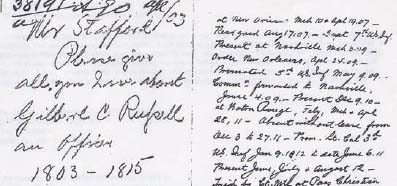 Mr Stafford
Please give
all you have about
Gilbert C Russell
an Officer
1803 - 1815
at New Orleans - Mch 10 & Apl 19.07 -
Resigned Aug 17.07 - Sept 7th US Inf
Present at Nashville Mch 3.09 -
Order New Orleans, Apl 24.09 -
Promoted 5th US Inf May 9.09 -
Comm'n forwarded to Nashville,
June 4.09 - Present Dec 9.10 -
at Baton Rouge, Feby, Mch & Apl
11 - Absent without leave from
Dec 3 to 27.11 - Prom. Lt. Col 3d
US Inf Jan 9.1812 to date June 6.11
Present June, July & August 12 -
Tried by Ct. Ml at Pass Christian